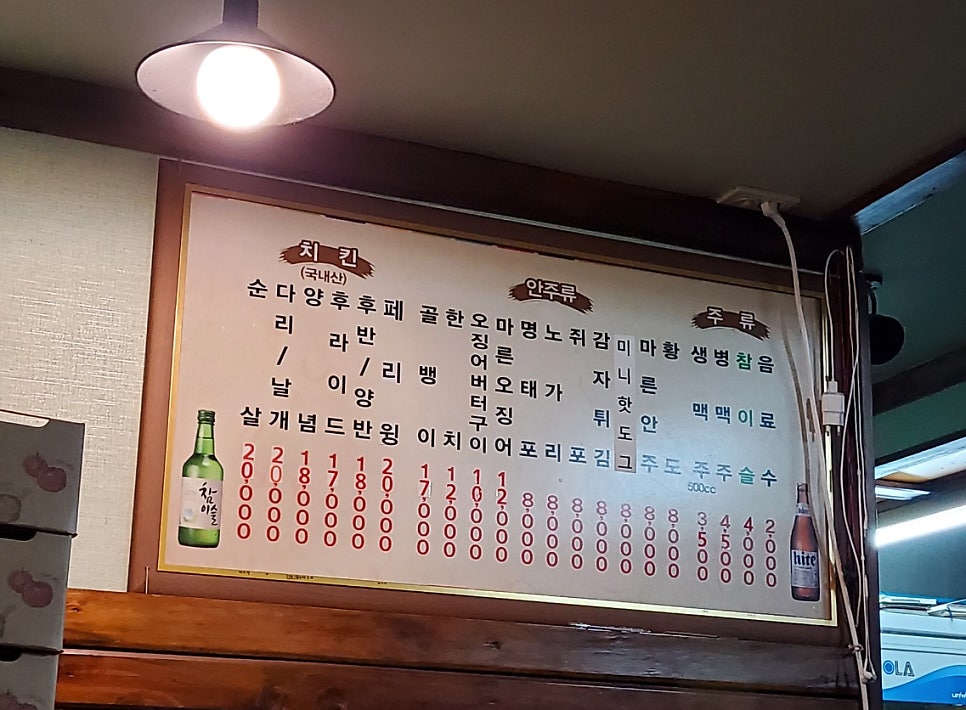 치킨
(국내산)
순살 20,000
다리/날개 20,000
양념 18,000
후라이드 17,000
후반/양반 18,000
페리윙 20,000
안주류
골뱅이 17,000
한치 12,000
오징어버터구이 10,000
마른오징어 12,000
명태포 8,000
노가리 8,000
쥐포 8,000
감자튀김 8,000
미니핫도그 8,000
마른안주 8,000
황도 8,000
주류
생맥주 500cc 3,500
병맥주 4,500
참이슬 4,000
음료수 2,000
참이슬
hite
OLA